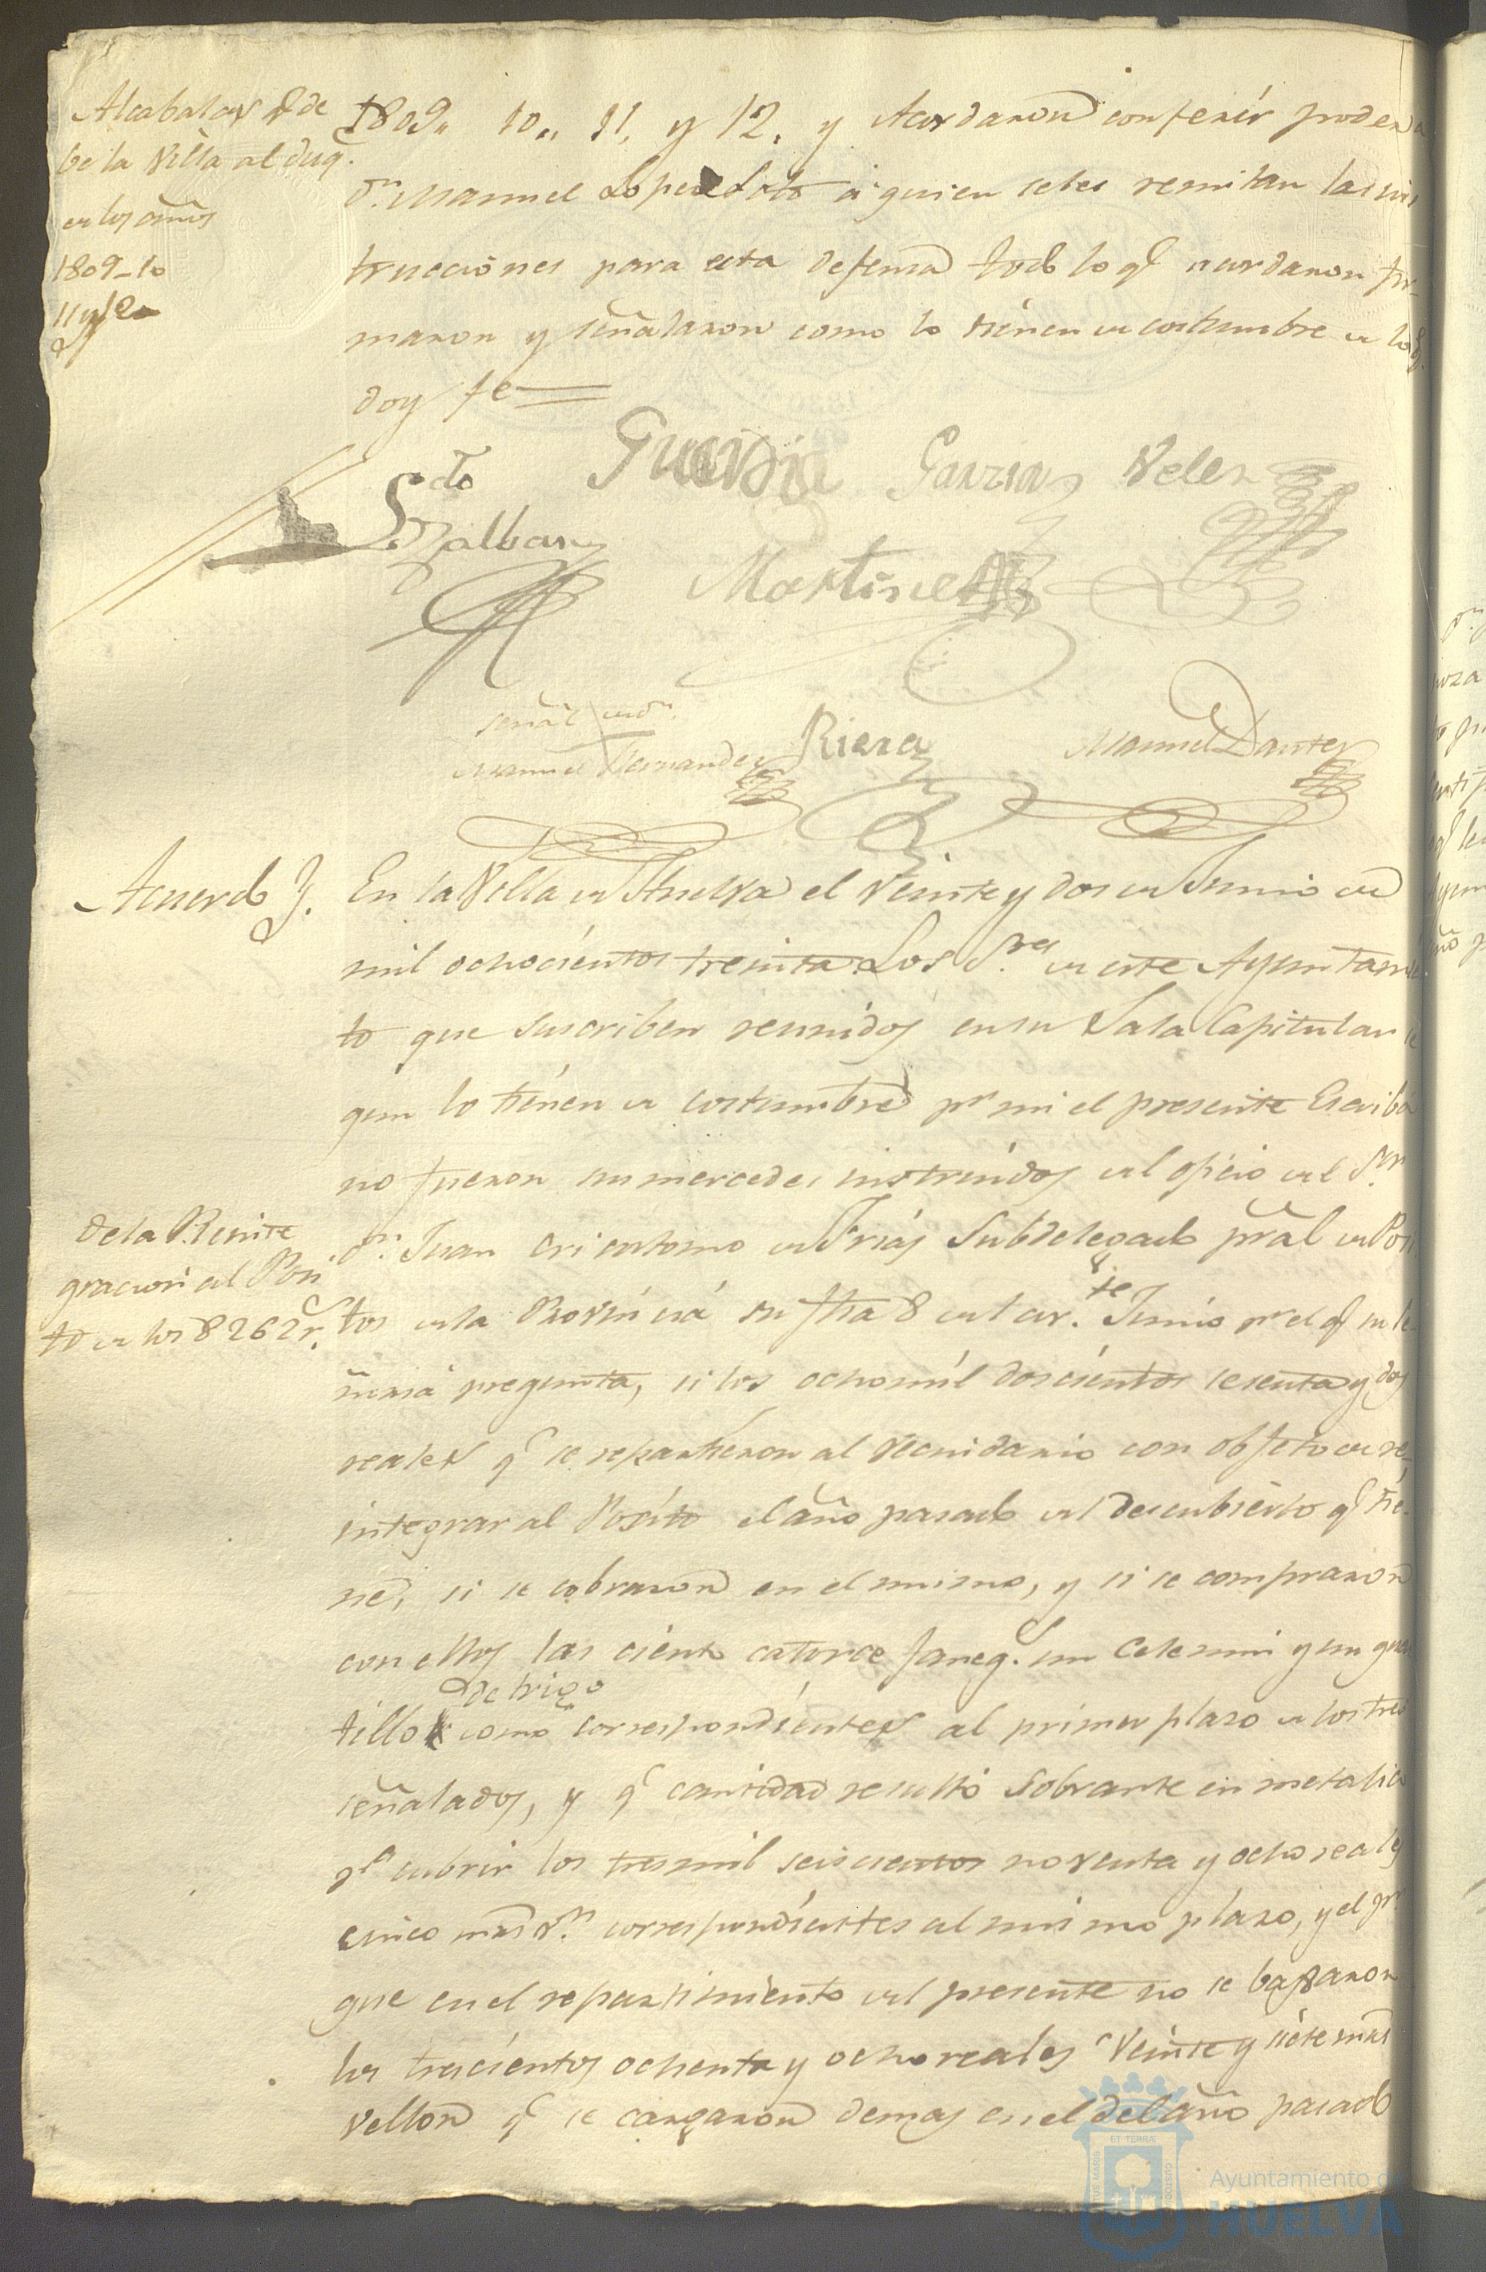 Alcabalas q.e de
be la Villa al Duq.
en los años
1809-10
11 y 12
1809,, 10,, 11, y 12, y Acordaron conferir poder a
D.n Manuel Lopez Soto á quien seles remitan las ins
trucciones para esta defensa todo lo q.e acordaron fir-
maron y señalaron como lo tienen de costumbre de lo q.
doy fe
S.do
Garcia Velez
Martinez
señal de D.n
Manuel Hernandez
Riera
Manuel Dantes
Acuerdo
En la Villa de Huelva el veinte y dos de Junio de
mil ochocientos treinta Los S.res de este Ayuntamien
to que suscriben reunidos en su Sala Capitular se
gun lo tienen de costumbre p.r mi el presente Escriba
no fueron sus mercedes instruidos del oficio del S.or
de la Reinte
gracion al Posi
to de los 8262 r.s
D.n Juan Crisostomo de Frias Subdelegado pral de Posi
tos de la Provincia su fha 8 del cor.te Junio p.r el q.e su Se
ñoria pregunta, si los ochomil doscientos sesenta y dos
reales q.e se repartieron al vecindario con objeto de re-
integrar al Posito el año pasado del descubierto q.e tie-
ne, si se cobraron en el mismo, y si se compraron
con ellos las ciento catorce faneg.s un celemin y un quar
de trigo
tillo como correspondientes al primer plazo de los tres
señalados, y q.e cantidad resultó sobrante en metalico
p.a cubrir los tresmil seiscientos noventa y ocho reales
cinco mrs v.n correspondientes al mismo plazo, y el p.r
que en el repartimiento del presente no se bajaron
los trescientos ochenta y ocho reales veinte y siete mrs
vellon q.e se cargaron demas en el del año pasado
Ayuntamiento de
HUELVA